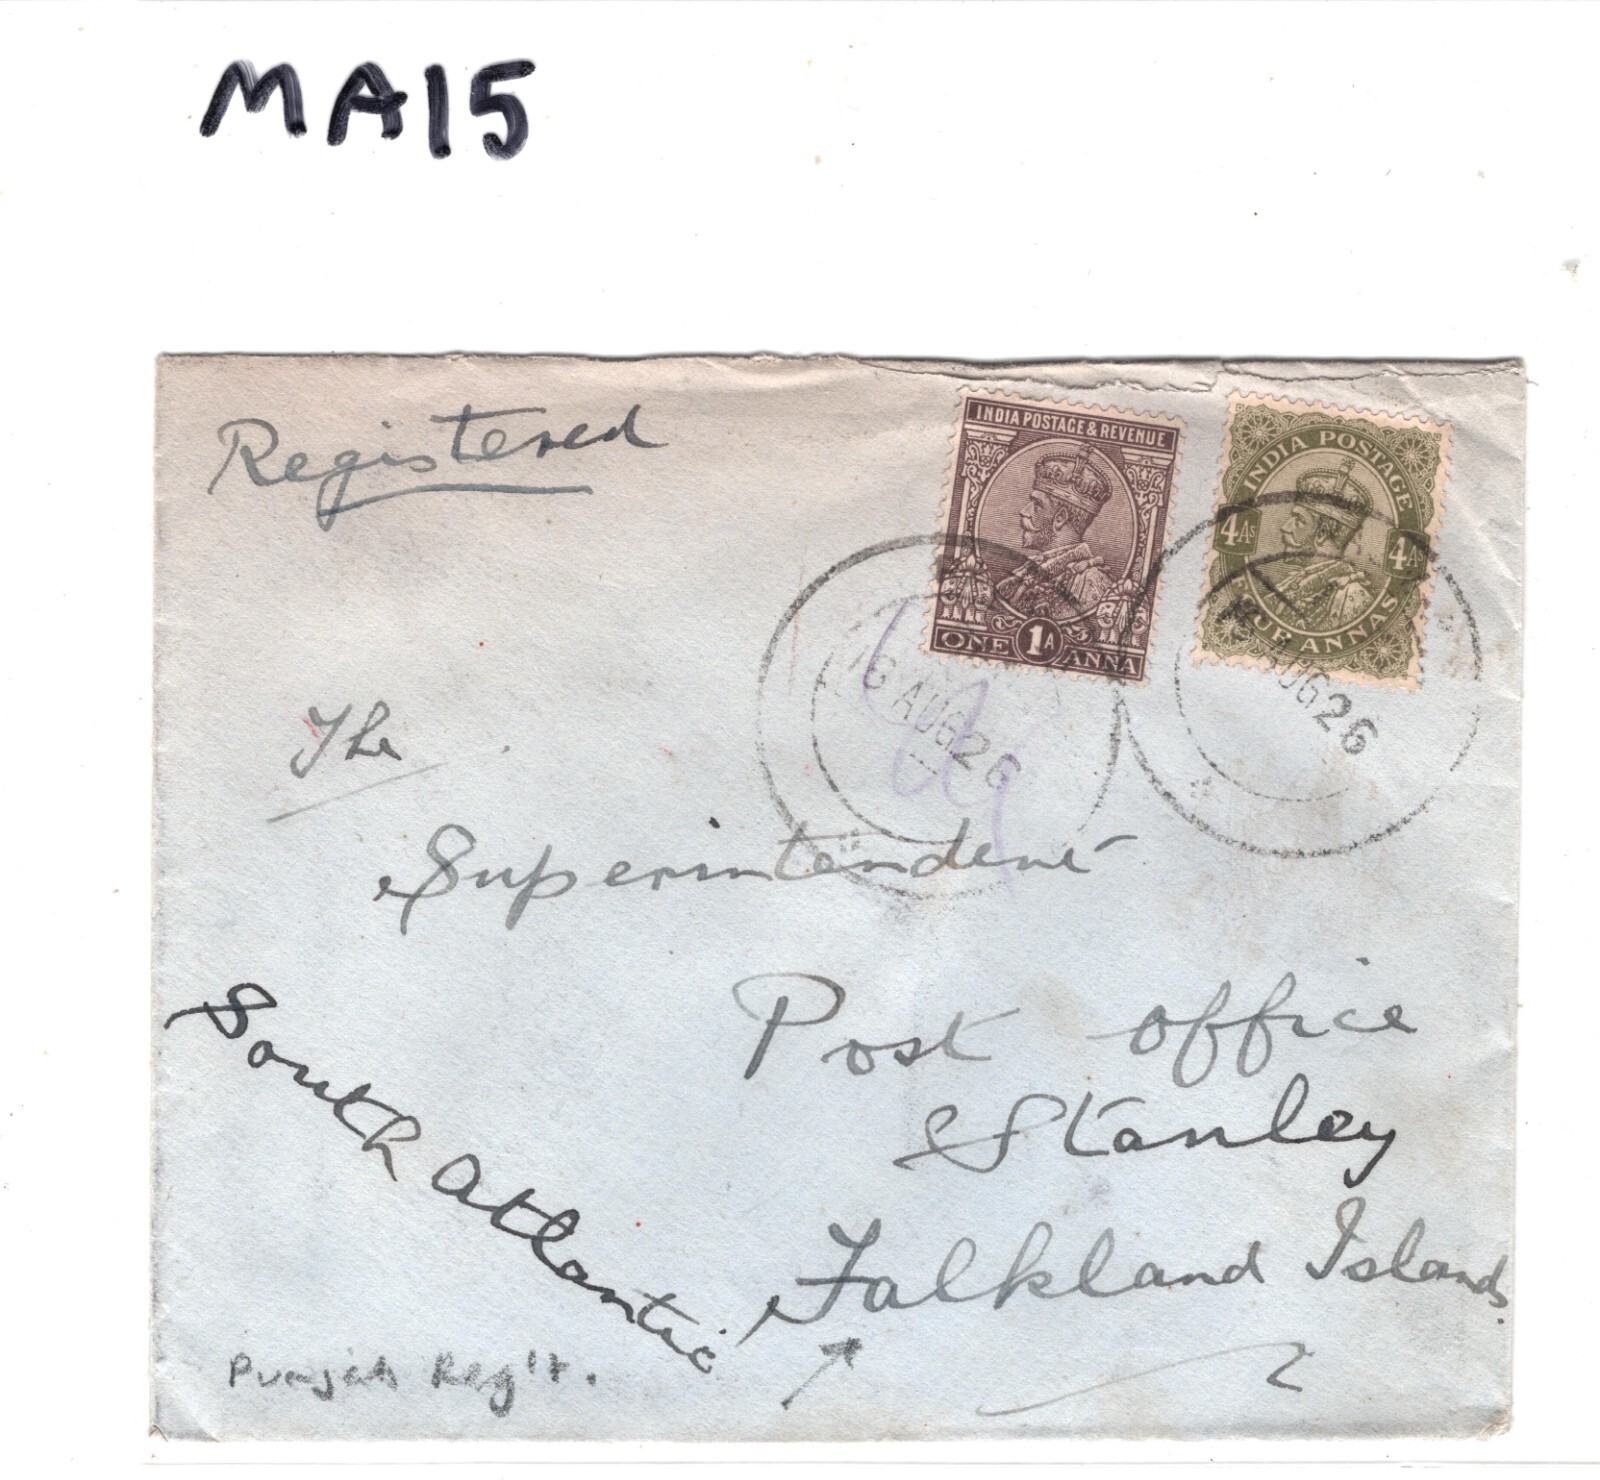 MA15
Registered
INDIA POSTAGE & REVENUE
ONE 1A ANNA
INDIA POSTAGE
4As 4As
FOUR ANNAS
16 AUG 26
AUG 26
The
Superintendent
Post Office
Stanley
Falkland Islands.
South Atlantic
Punjab Reg't.